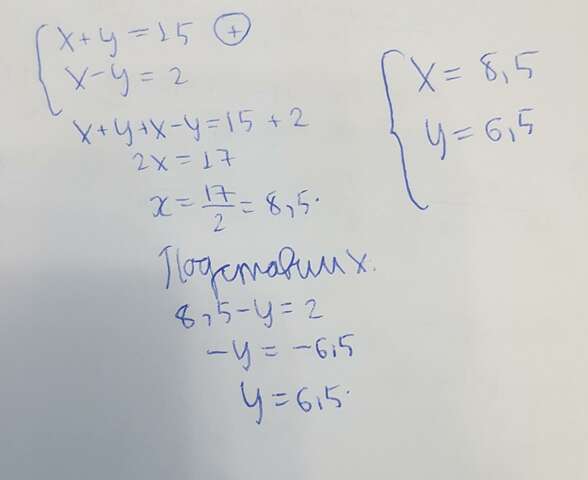 x+y=15 (+)
x-y=2
x+y+x-y=15+2
2x=17
x=17/2=8,5.
Подставим x.
8,5-y=2
-y=-6,5
y=6,5.
x=8,5
y=6,5